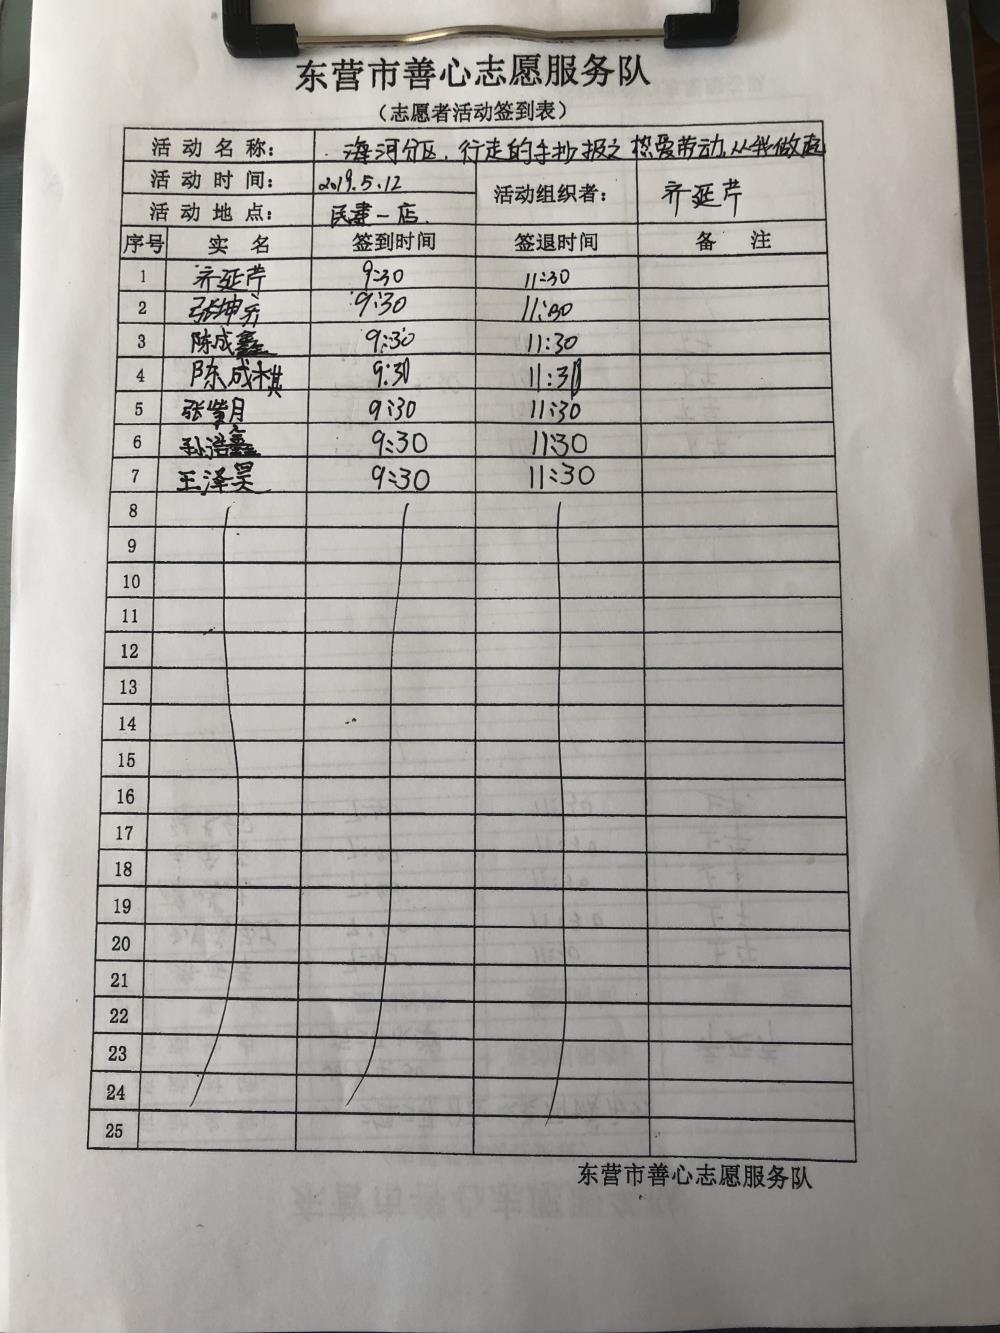 东营市善心志愿服务队
（志愿者活动签到表）
活动名称： 海河分区.行走的手抄报之热爱劳动,从我做起
活动时间： 2019.5.12 活动组织者： 齐延芹
活动地点： 民丰一店.
序号 实名 签到时间 签退时间 备注
1 齐延芹 9:30 11:30
2 张坤 9:30 11:30
3 陈成鑫 9:30 11:30
4 陈成棋 9:30 11:30
5 张紫月 9:30 11:30
6 孙浩鑫 9:30 11:30
7 王泽昊 9:30 11:30
8
9
10
11
12
13
14
15
16
17
18
19
20
21
22
23
24
25
东营市善心志愿服务队